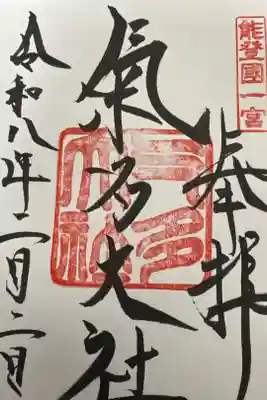 能登國一宮
奉拝
氣多大社
令和八年二月二日